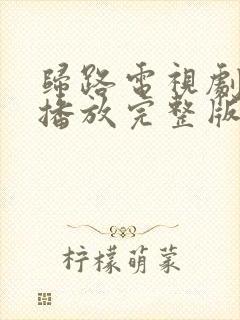 歸路電視劇
播放完整版
柠檬萌菜